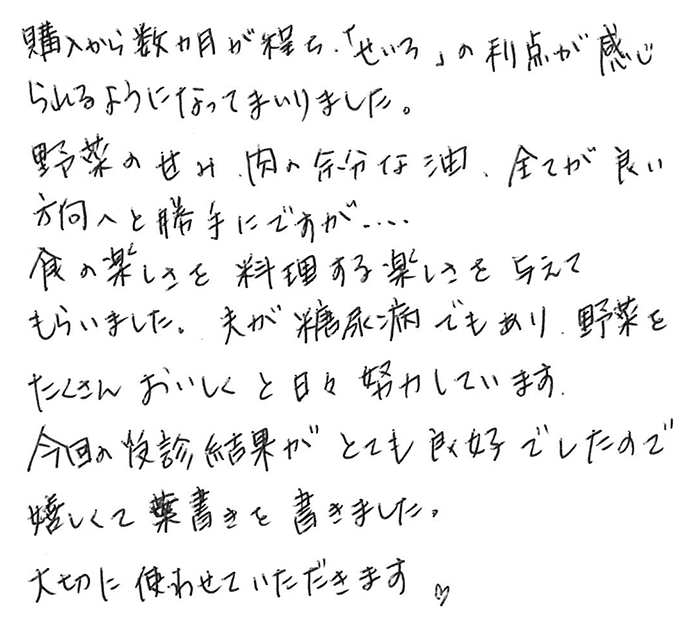 購入から数カ月が経ち、「せいろ」の利点が感じ
られるようになってまいりました。
野菜の甘み、肉の余分な油、全てが良い
方向へと勝手にですが‥‥
食の楽しさを 料理する楽しさを 与えて
もらいました。夫が糖尿病でもあり、野菜を
たくさん おいしくと日々努力しています。
今回の検診結果が とても良好でしたので
嬉しくて葉書きを書きました。
大切に使わせていただきます♡